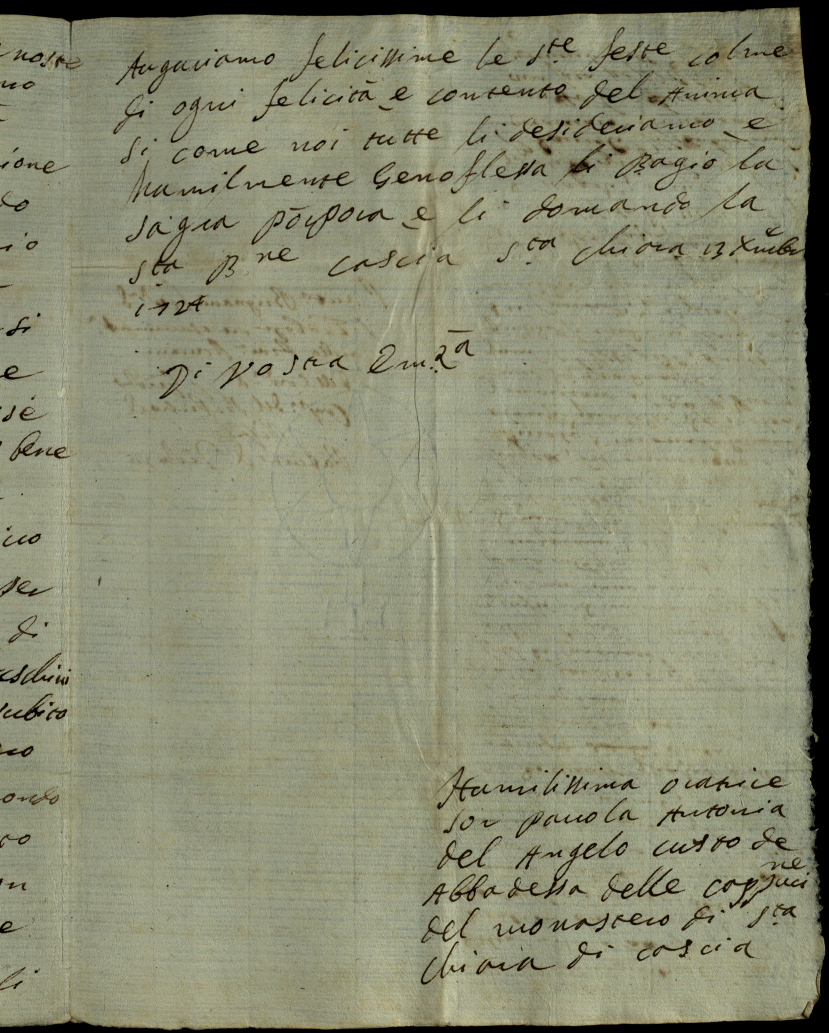 noste
mo
ione
do
io
si
e
se
bene
ico
ser
di
eschini
subito
no
ondo
to
un
e
li
Auguriamo felicissime le s.te feste colme
di ogni felicità e contento del Anima
si come noi tutte li desideriamo e
humilmente Genoflessa li Bagio la
sagra pōrpora e li domando la
sta B ne cascia sta chiara 13 Xmbr
1724
Di Vostra Emzā
Humilissima oratrice
Sor pauola Antonia
del Angelo custode
Abbadessa delle cappucine
del monastero di sta
Chiara di cascia